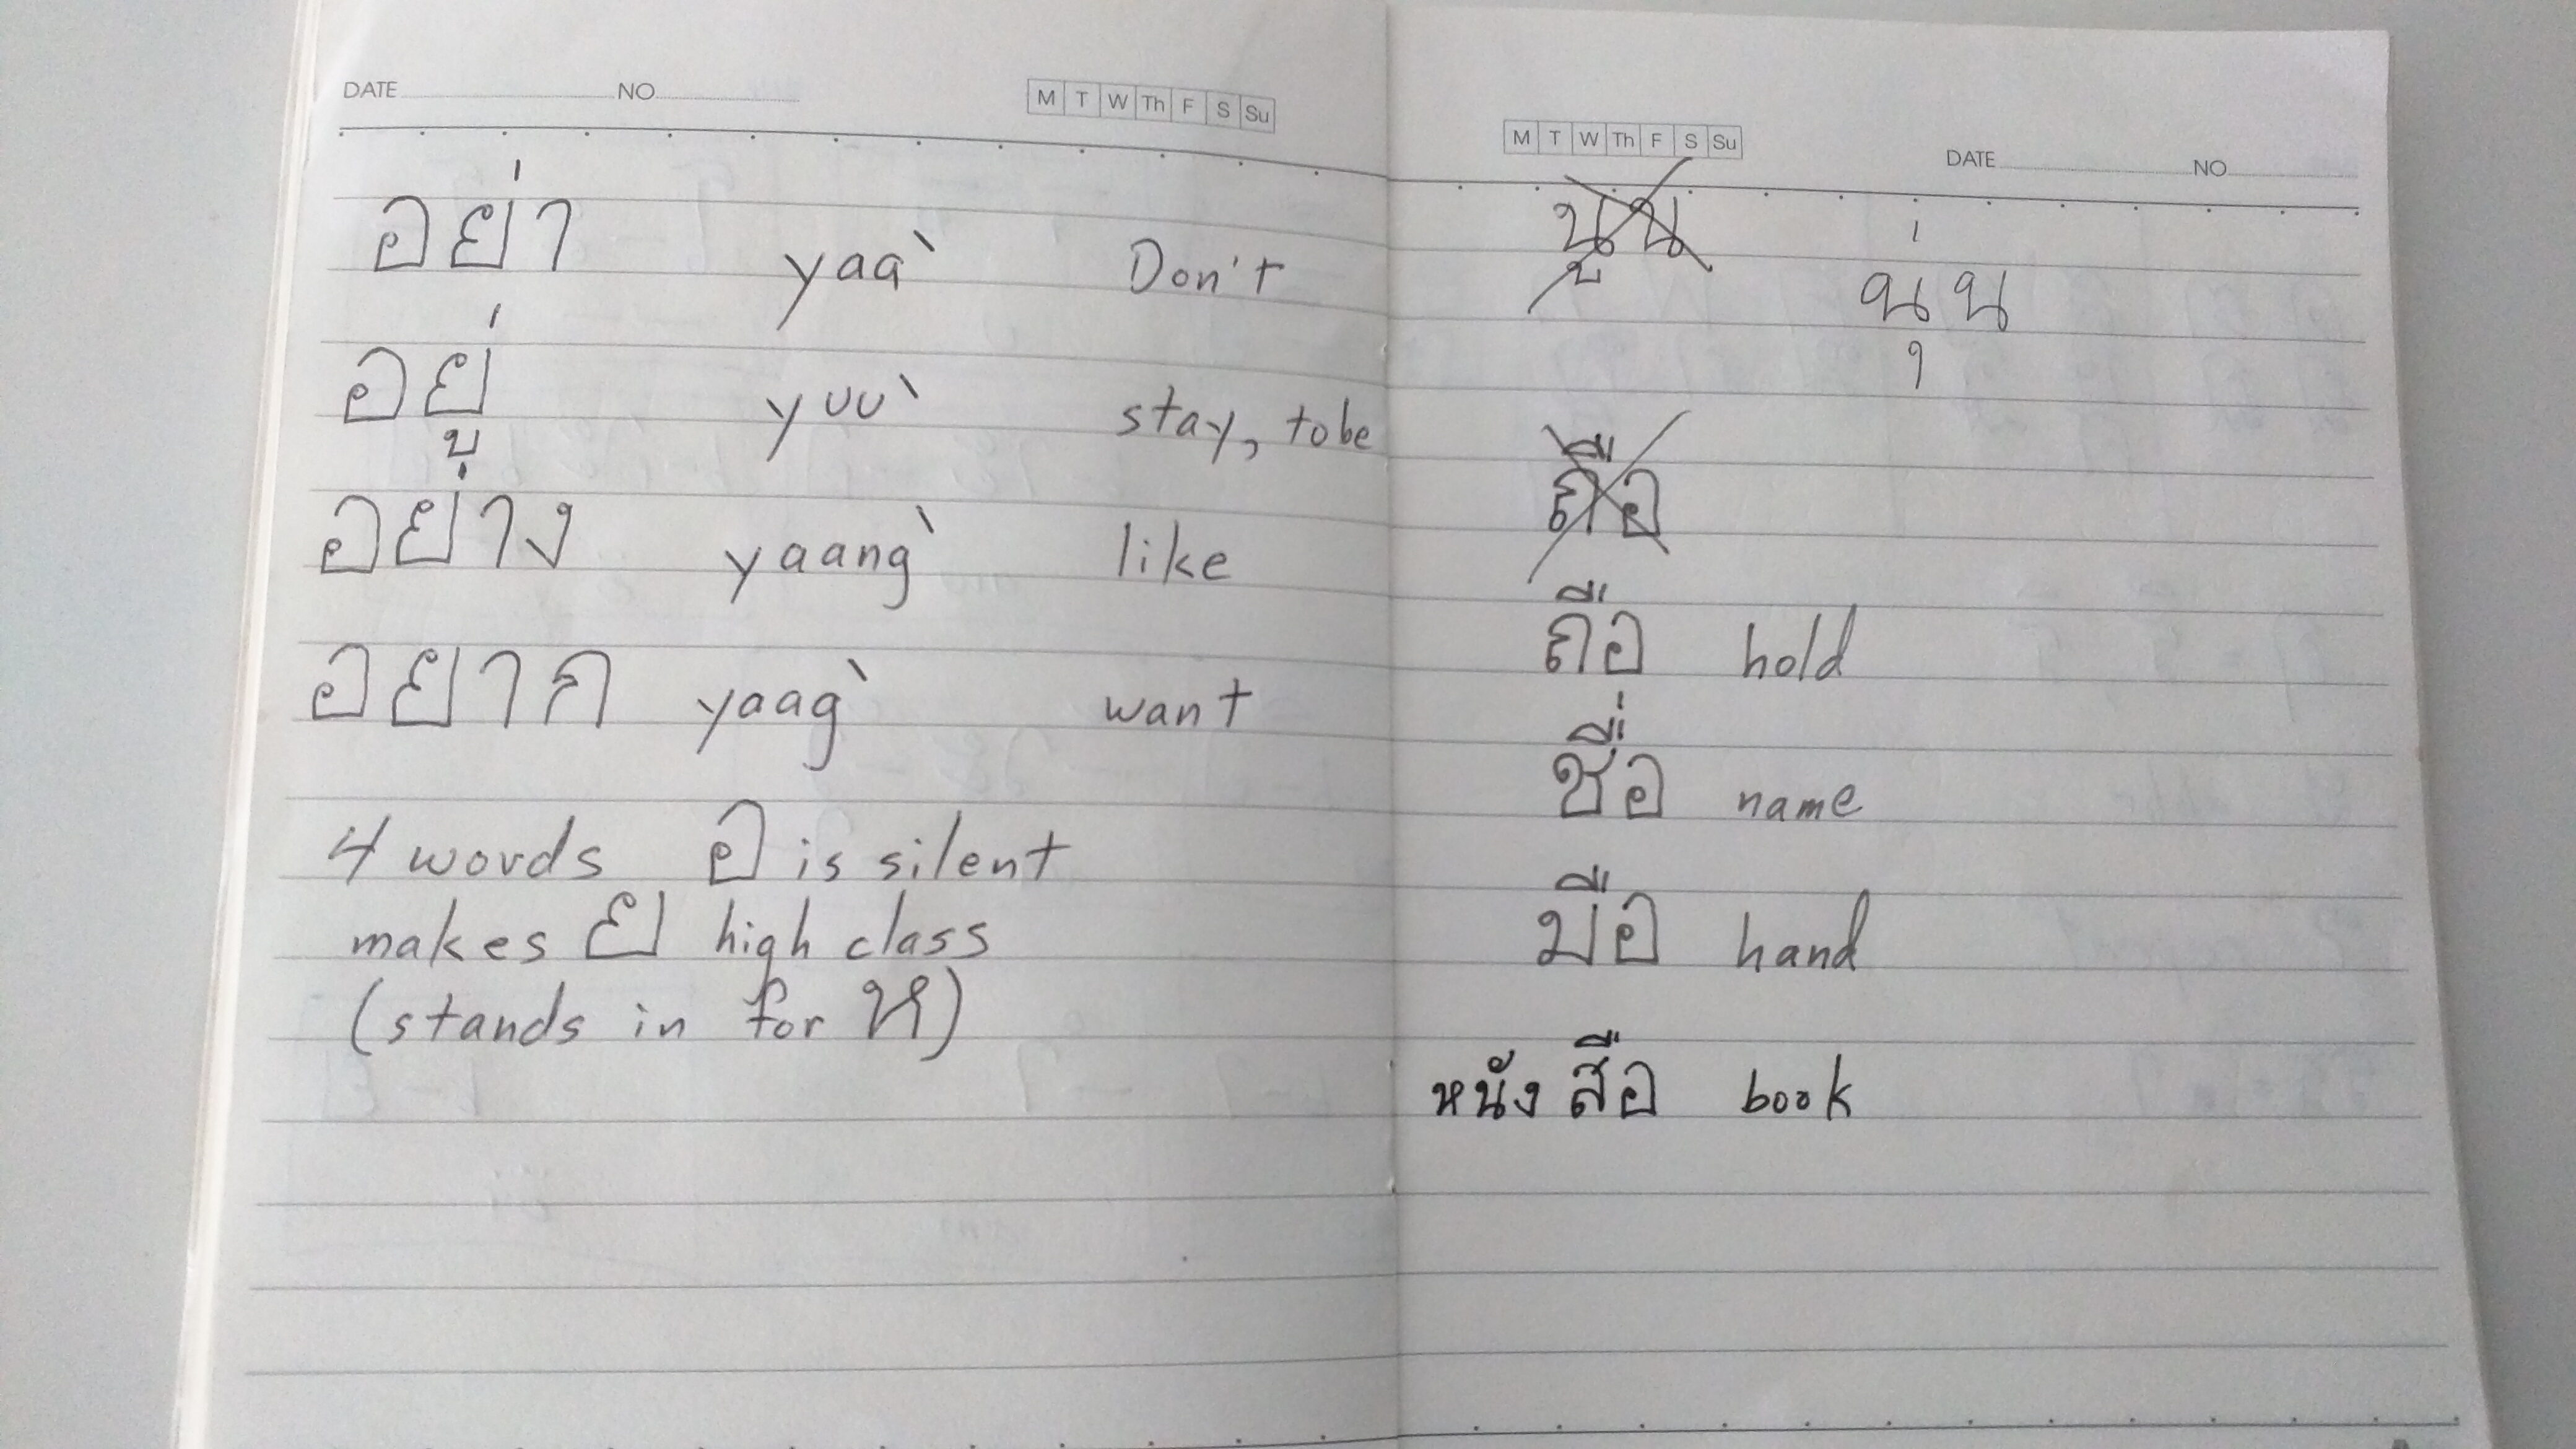 DATE NO M T W Th F S Su
อย่า yaa` Don't
อยู่ yuu` stay, to be
อย่าง yaang` like
อยาก yaag` want
4 words อ is silent
makes ย high class
(stands in for ห)
M T W Th F S Su DATE NO
นุ่น
ถือ
ถือ hold
ชื่อ name
มือ hand
หนังสือ book